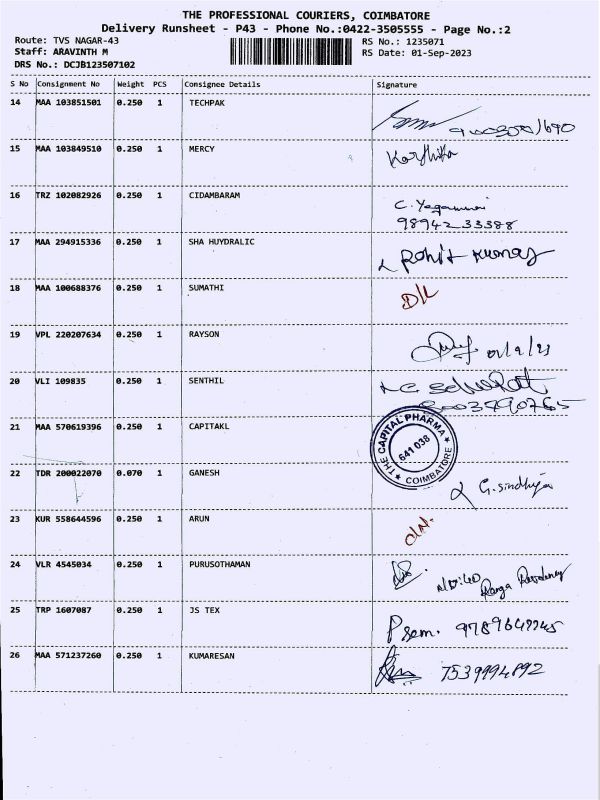 THE PROFESSIONAL COURIERS, COIMBATORE
Delivery Runsheet - P43 - Phone No.:0422-3505555 - Page No.:2
Route: TVS NAGAR-43 RS No.: 1235071
Staff: ARAVINTH M RS Date: 01-Sep-2023
DRS No.: DCJB123507102
S No Consignment No Weight PCS Consignee Details Signature
14 MAA 103851501 0.250 1 TECHPAK
15 MAA 103849510 0.250 1 MERCY Karthika
16 TRZ 102082926 0.250 1 CIDAMBARAM C.
98942 33388
17 MAA 294915336 0.250 1 SHA HUYDRALIC Rohit Kumar
18 MAA 100688376 0.250 1 SUMATHI D/L
19 VPL 220207634 0.250 1 RAYSON 01/9/23
20 VLI 109835 0.250 1 SENTHIL
21 MAA 570619396 0.250 1 CAPITAKL THE CAPITAL PHARMA
641 038
★ COIMBATORE ★
22 TDR 200022070 0.070 1 GANESH G. sindhuja
23 KUR 558644596 0.250 1 ARUN
24 VLR 4545034 0.250 1 PURUSOTHAMAN
25 TRP 1607087 0.250 1 JS TEX
26 MAA 571237260 0.250 1 KUMARESAN 7539994892